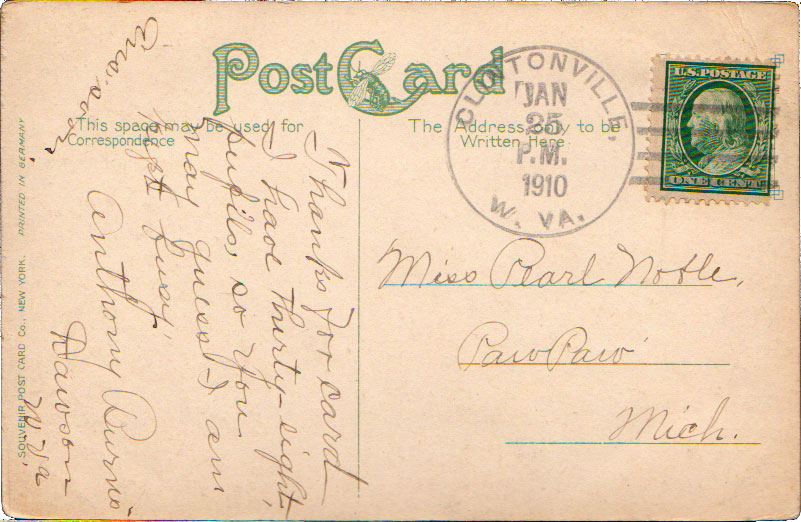 Post Card
This space may be used for
Correspondence
The Address only to be
Written Here
CLINTONVILLE,
JAN
25
P.M.
1910
W. VA.
U.S. POSTAGE
ONE CENT
Thanks for card
I have thirty-eight
pupils, so you
may guess I am
kept busy,
Anthony Burns
Dawson
W Va
Miss Pearl Noble,
Paw Paw
Mich.
SOUVENIR POST CARD CO., NEW YORK.
PRINTED IN GERMANY